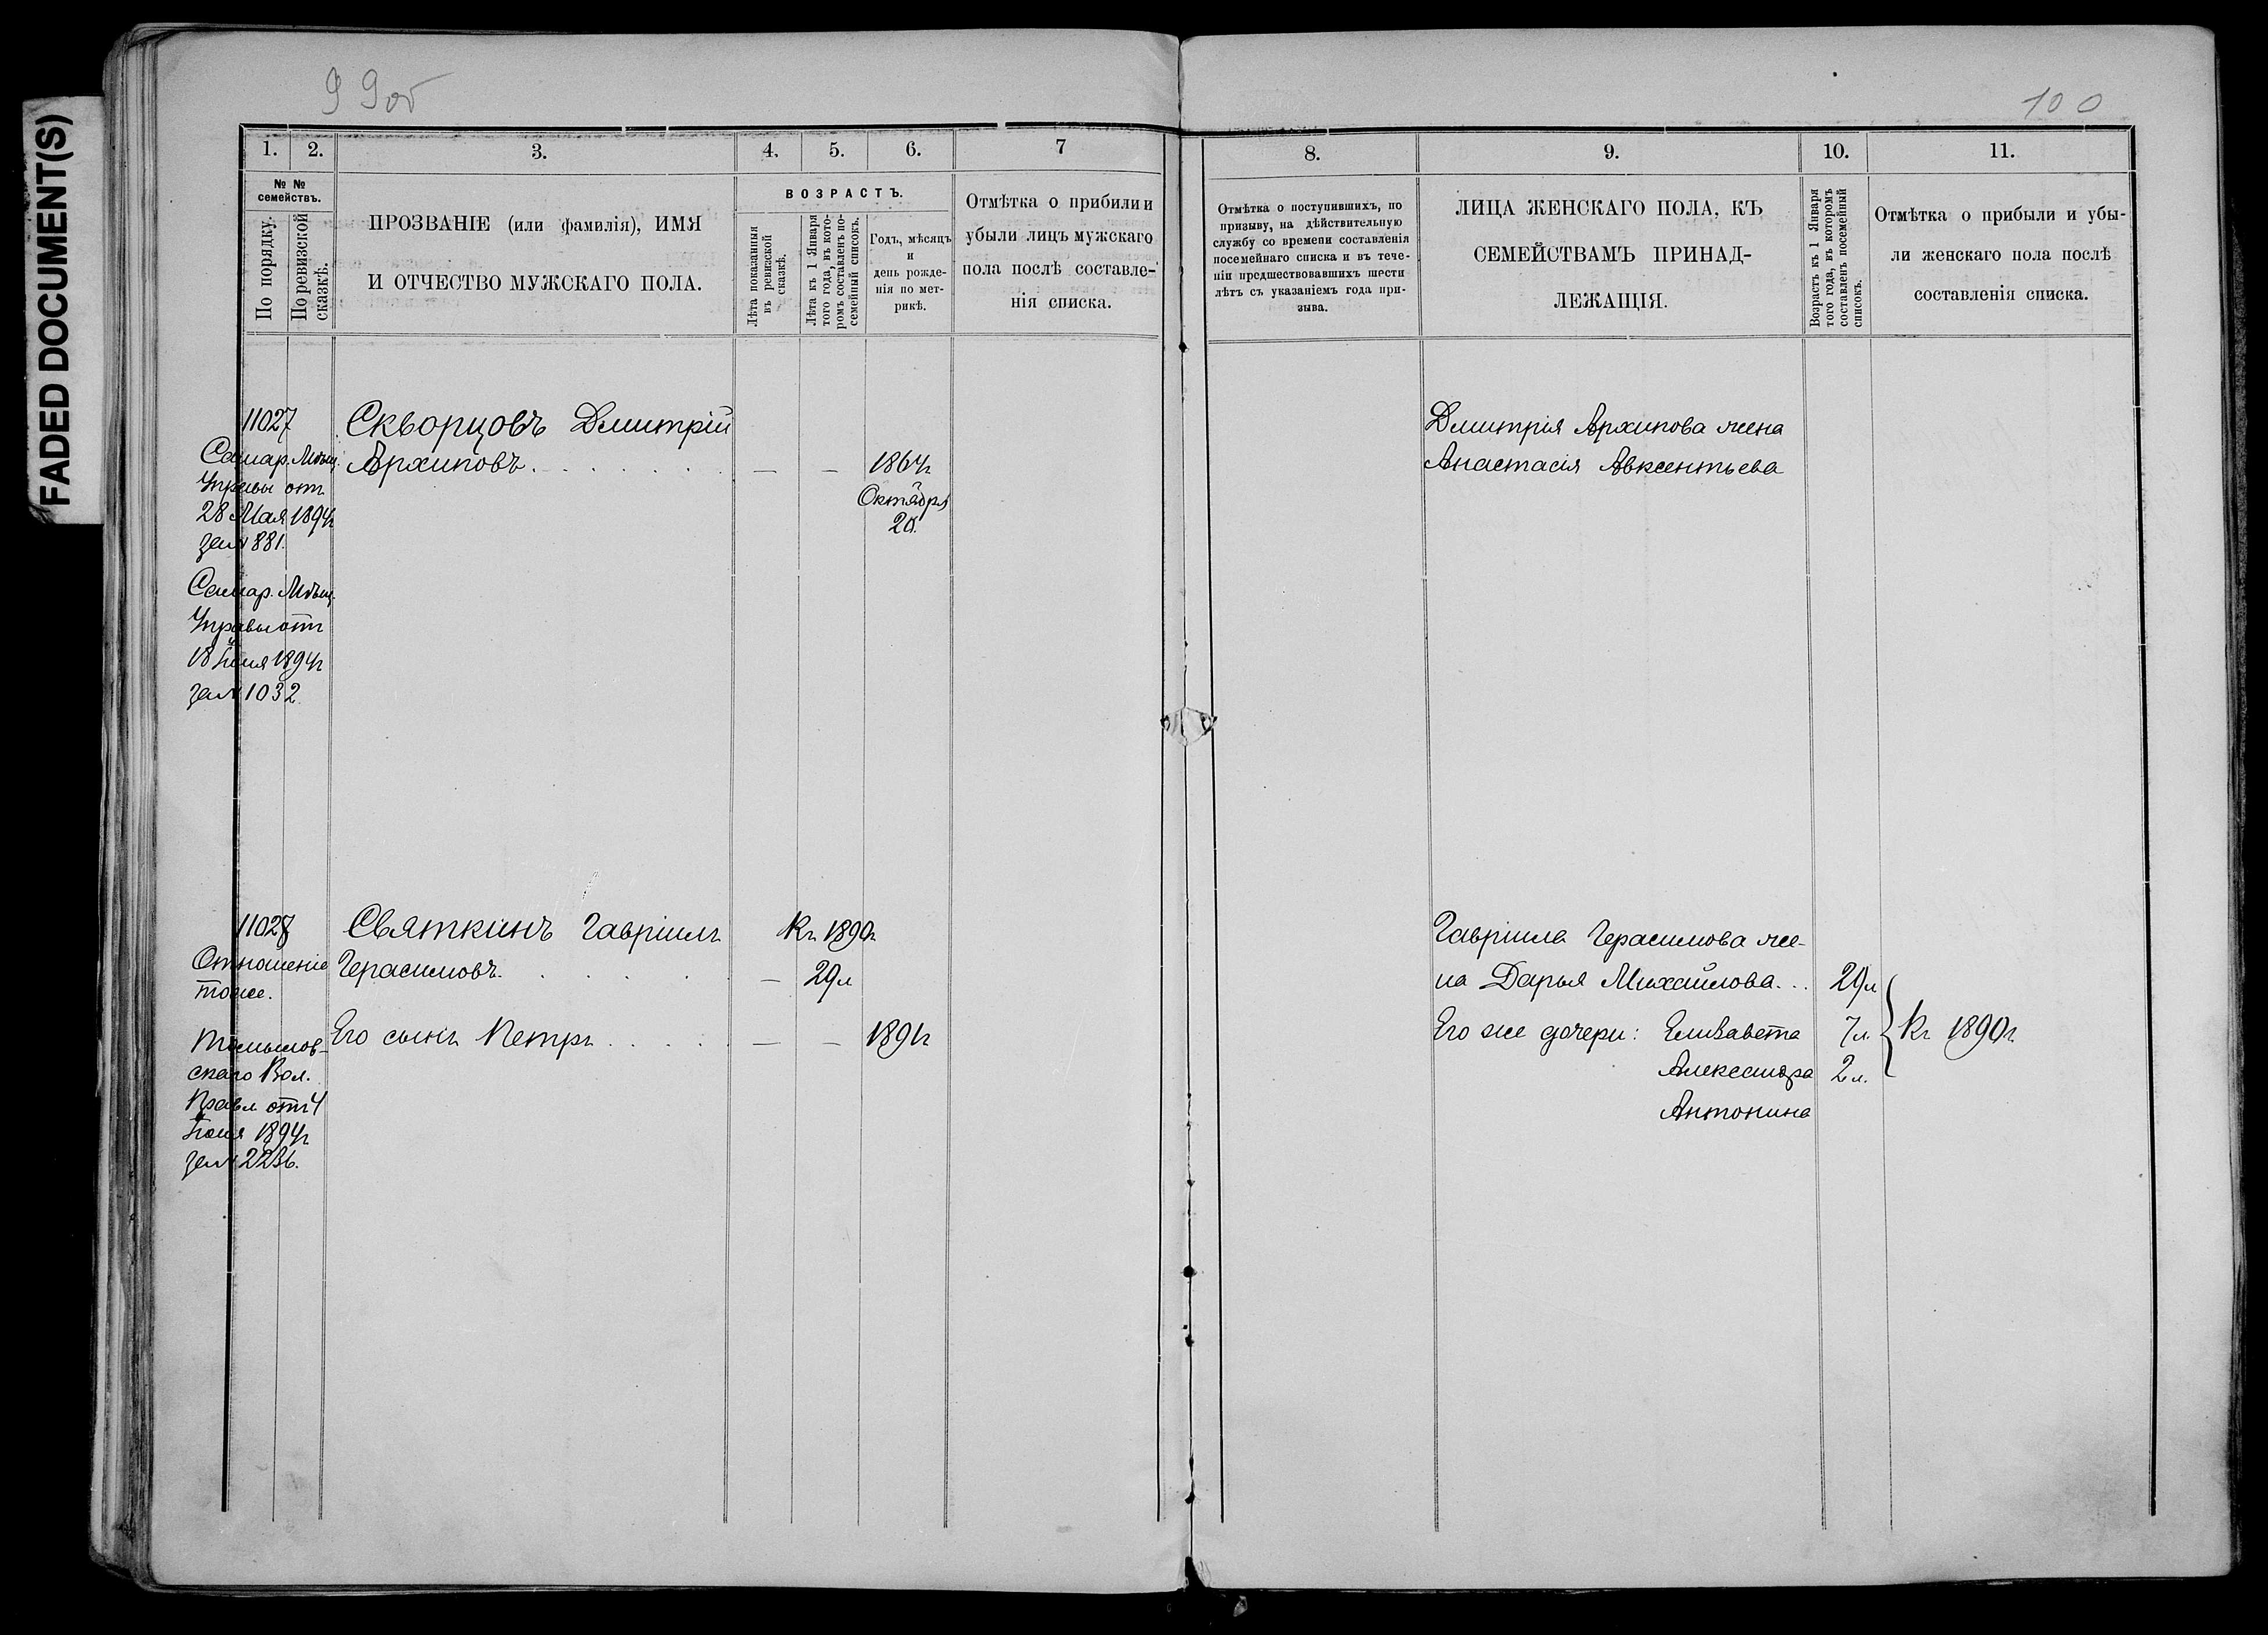 FADED DOCUMENT(S)
99об
100
1.
2.
3.
4.
5.
6.
7
8.
9.
10.
11.
№ №
семействъ.
По порядку.
По ревизской
сказкѣ.
ПРОЗВАНІЕ (или фамилія), ИМЯ
И ОТЧЕСТВО МУЖСКАГО ПОЛА.
ВОЗРАСТЪ.
Лѣта показанныя
въ ревизской
сказкѣ.
Лѣта къ 1 Января
того года, въ кото-
ромъ составленъ по-
семейный списокъ.
Годъ, мѣсяцъ
и
день рожде-
нія по мет-
рикѣ.
Отмѣтка о прибыли и
убыли лицъ мужскаго
пола послѣ составле-
нія списка.
Отмѣтка о поступившихъ, по
призыву, на дѣйствительную
службу со времени составленія
посемейнаго списка и въ тече-
ніи предшествовавшихъ шести
лѣтъ съ указаніемъ года при-
зыва.
ЛИЦА ЖЕНСКАГО ПОЛА, КЪ
СЕМЕЙСТВАМЪ ПРИНАД-
ЛЕЖАЩІЯ.
Возрастъ къ 1 Января
того года, въ которомъ
составленъ посемейный
списокъ.
Отмѣтка о прибыли и убы-
ли женскаго пола послѣ
составленія списка.
11027
Самар. Мѣщ.
Управы отъ
28 Мая 1894г
за № 881.
Самар. Мѣщ.
Управы отъ
18 Іюня 1894г
за № 1032
Скворцовъ Дмитрій
Архиповъ. — — 1864г
Октября
20.
Дмитрія Архипова жена
Анастасія Авксентьева
11028
Отношеніе
тоже.
скаго Вол.
Правл отъ 4
Іюня 1894г
за № 2236.
Святкинъ Гавріилъ Къ 1890г
Герасимовъ. — 29л
Его сынъ Петръ — — 1891г
Гавріила Герасимова же-
на Дарья Михайлова... 29л
Его же дочери: Елизавета 7л. Къ 1890г.
Александра 2л.
Антонина